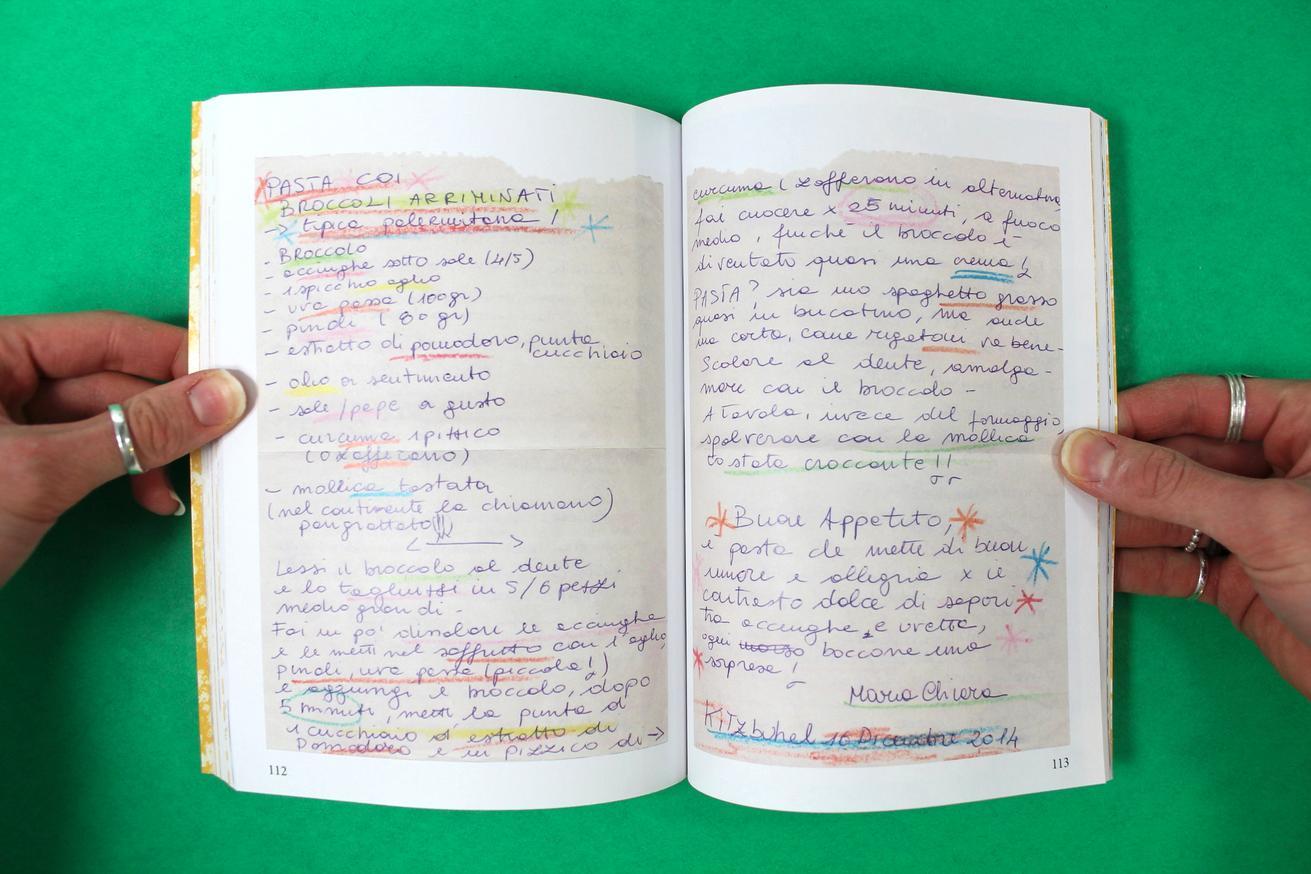 PASTA COI
BROCCOLI ARRIMINATI
-> tipica palermitana !
- BROCCOLO
- acciughe sotto sale (4/5)
- 1 spicchio aglio
- uva passa (100gr)
- pinoli (80 gr)
- estratto di pomodoro, punta
cucchiaio
- olio a sentimento
- sale/pepe a gusto
- curcuma 1 pizzico
(o zafferano)
- mollica tostata
(nel continente la chiamano)
pangrattato!!!
<——>
Lessi il broccolo al dente
e lo tagliuzzi in 5/6 pezzi
medio grandi -
Fai un po' dissolvere le acciughe
e le metti nel soffritto con l'aglio,
pinoli, uva passa (piccola!)
e aggiungi il broccolo, dopo
5 minuti, metti la punta di
1 cucchiaio di estratto di
Pomodoro e un pizzico di ->
112
curcuma (zafferano in alternativa
fai cuocere x 25 minuti, a fuoco
medio, finché il broccolo è
diventato quasi una crema!
PASTA? sia uno spaghetto grosso
quasi un bucatino, ma anche
una corta, come rigatoni va bene-
Scolare al dente, amalga-
mare con il broccolo -
A Tavola, invece del formaggio,
spolverare con la mollica
tostata croccante!!
Buon Appetito,
e pasta che metti di buon
umore e allegria x il
contrasto dolce di sapori
tra acciughe e uvetta,
ogni boccone una
sorpresa!
Maria Chiara
Kitzbuhel 16 Dicembre 2014
113